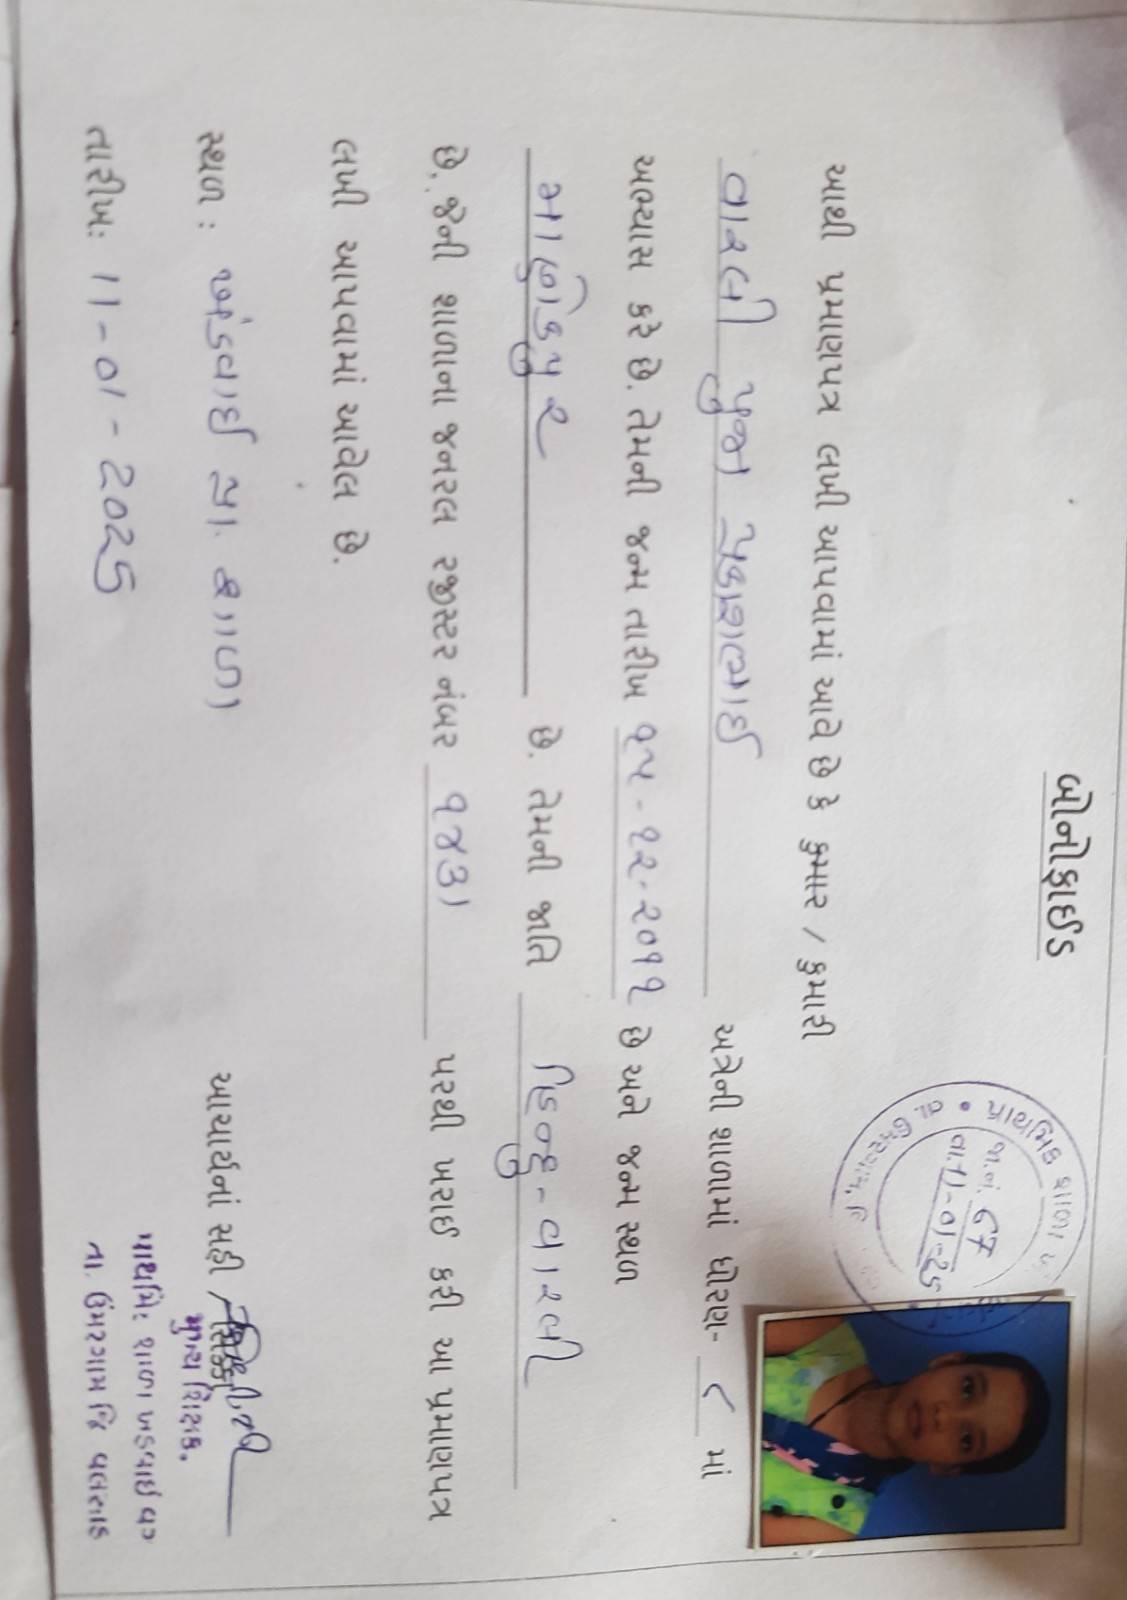 બોનોફાઈડ
આથી પ્રમાણપત્ર લખી આપવામાં આવે છે કે કુમાર / કુમારી
વારલી પુજા પ્રકાશભાઈ અત્રેની શાળામાં ધોરણ- ૮ માં
અભ્યાસ કરે છે. તેમની જન્મ તારીખ ૧૫-૧૨-૨૦૧૧ છે અને જન્મ સ્થળ
માણેકપુર છે. તેમની જાતિ હિન્દુ-વારલી
છે. જેની શાળાના જનરલ રજીસ્ટર નંબર ૧૪૩૧ પરથી ખરાઈ કરી આ પ્રમાણપત્ર
લખી આપવામાં આવેલ છે.
સ્થળ : ખંડવાઈ પ્રા. શાળા
તારીખ: 11-01-2025
આચાર્યનાં સહી / સિક્કા
મુખ્ય શિક્ષક.
પ્રાથમિક શાળા ખડવાઈ
તા. ઉમરગામ જિ વલસાડ
જા.નં. 67
તા.11-01-25
તા. ઉમરગામ, જિ